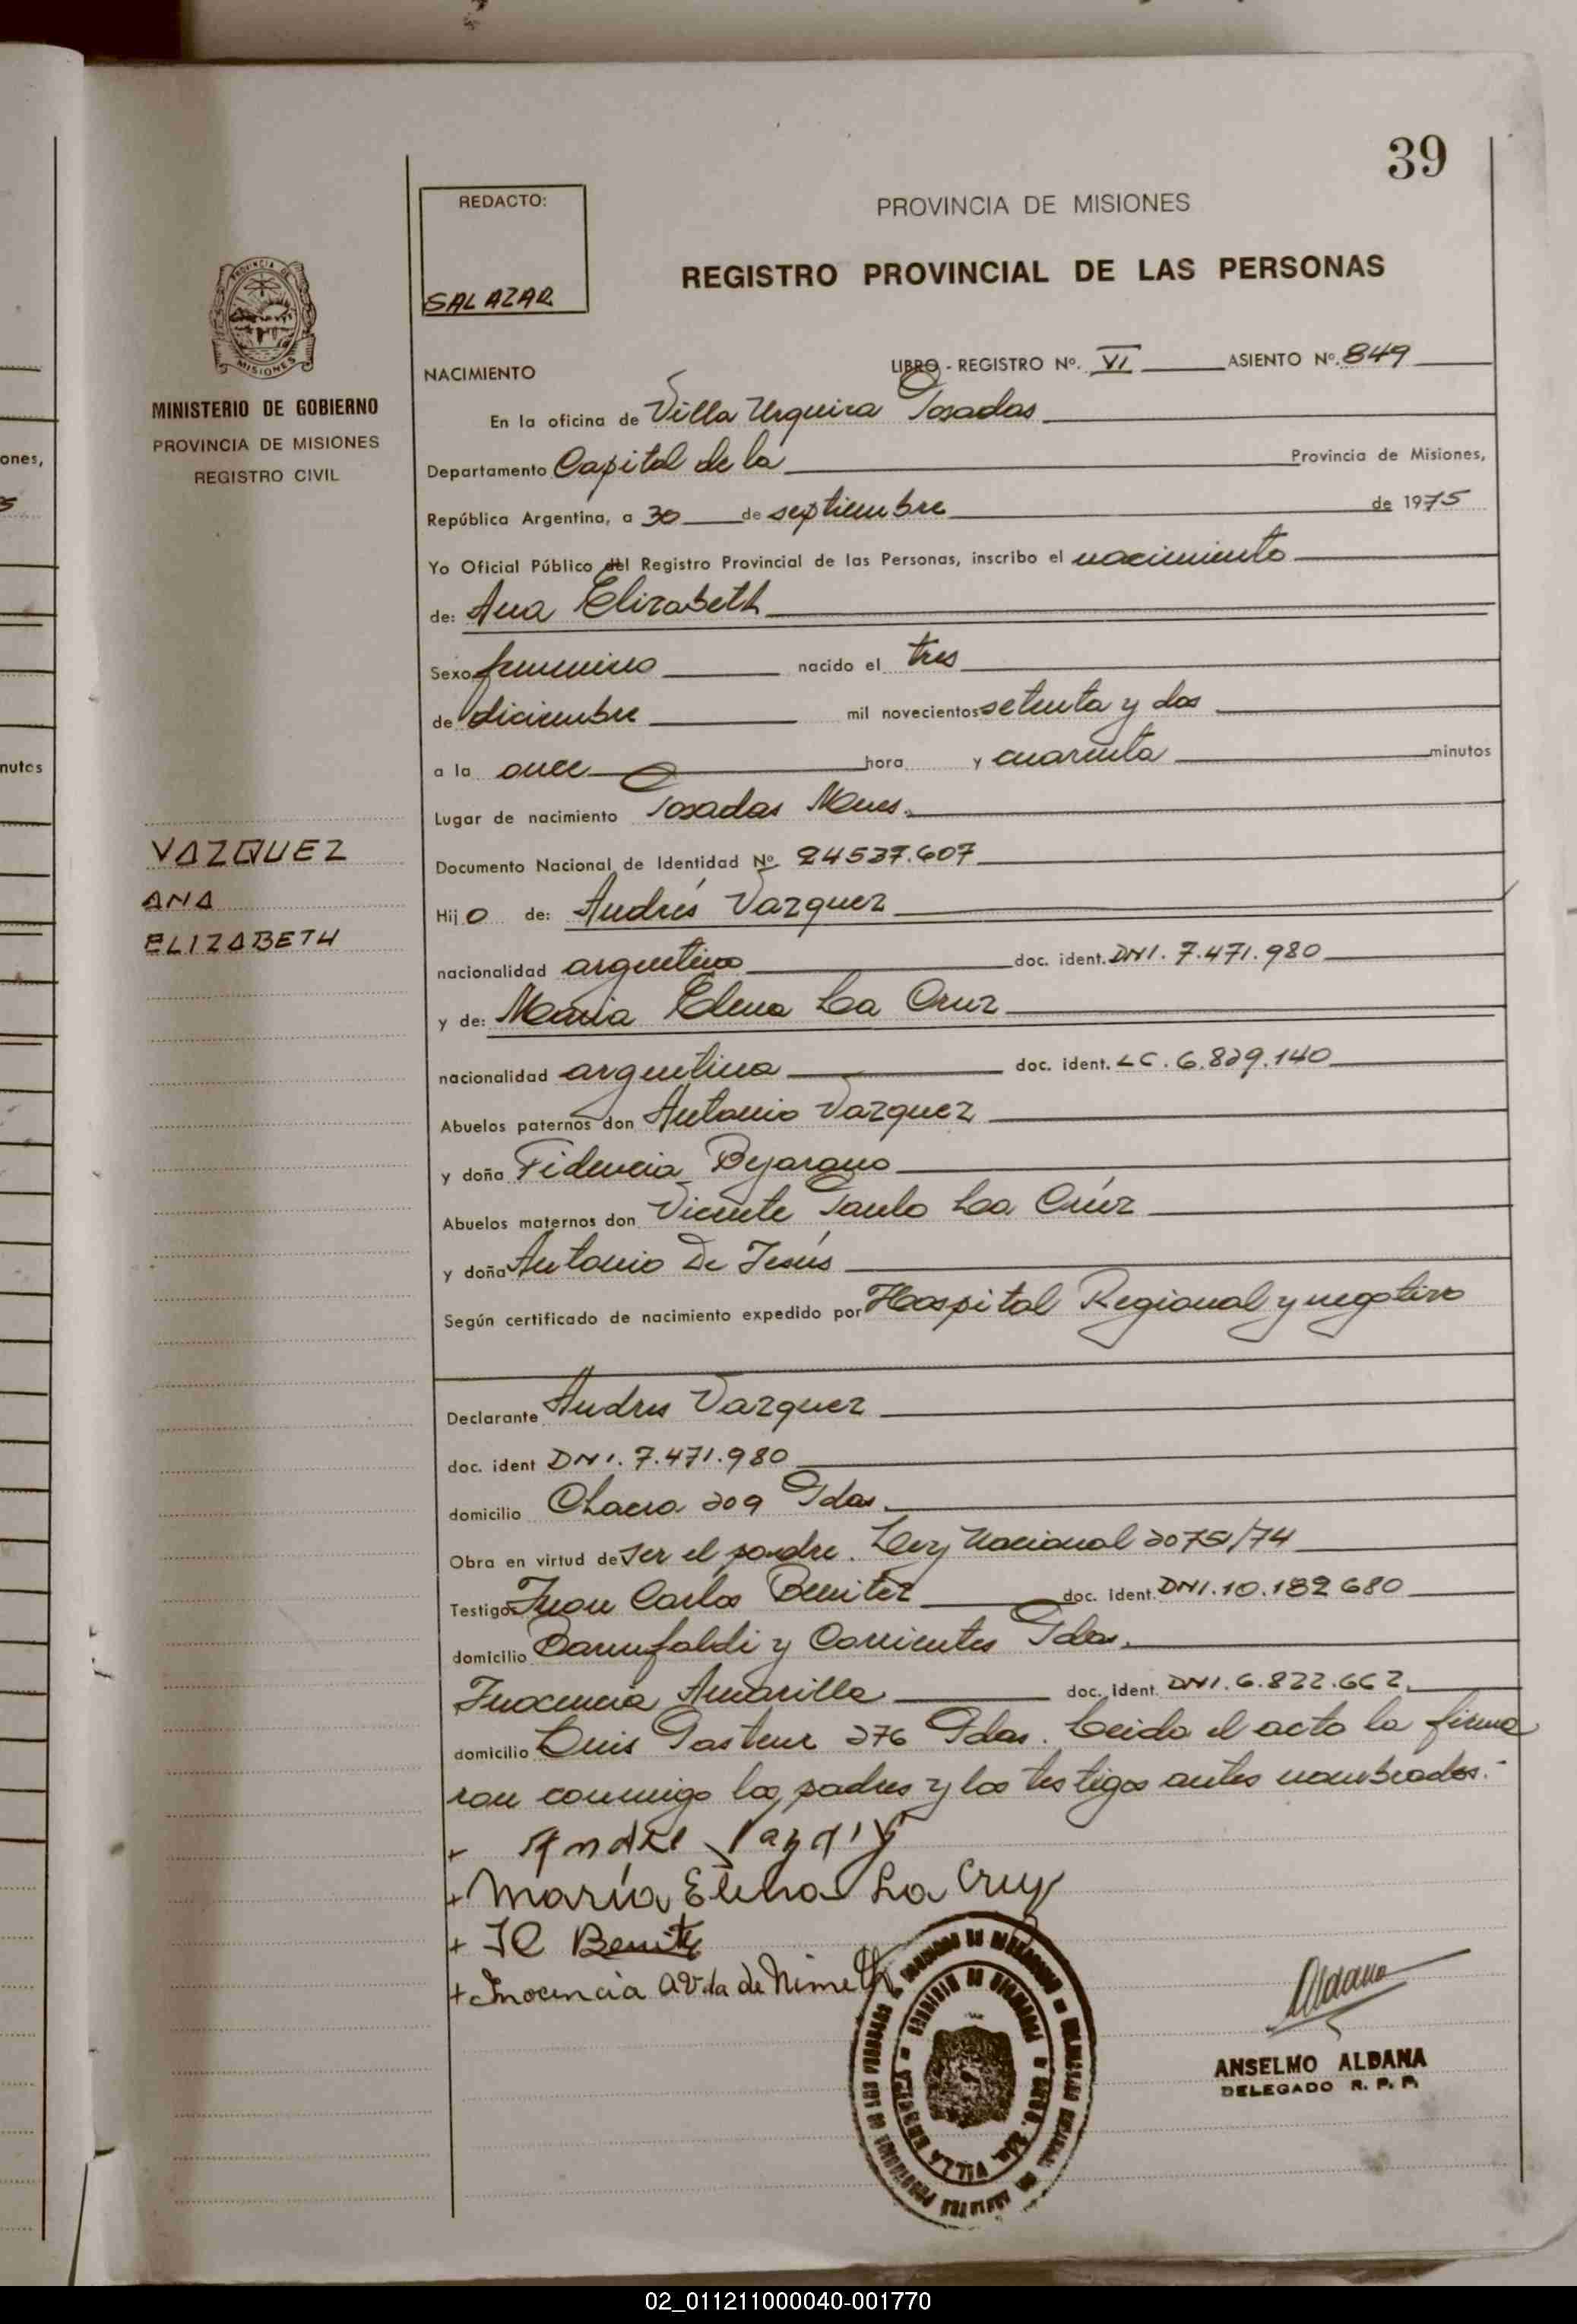 39
REDACTO:
SALAZAR
PROVINCIA DE MISIONES
REGISTRO PROVINCIAL DE LAS PERSONAS
PROVINCIA DE
MISIONES
MINISTERIO DE GOBIERNO
PROVINCIA DE MISIONES
REGISTRO CIVIL
NACIMIENTO
LIBRO - REGISTRO Nº. VI ASIENTO Nº. 849
En la oficina de Villa Urquiza Posadas
Departamento Capital de la Provincia de Misiones,
República Argentina, a 30 de septiembre de 1975
Yo Oficial Público del Registro Provincial de las Personas, inscribo el nacimiento
de: Ana Elizabeth
Sexo femenino nacido el tres
de diciembre mil novecientos setenta y dos
a la once hora y cuarenta minutos
Lugar de nacimiento Posadas Mnes.
VAZQUEZ
ANA
ELIZABETH
Documento Nacional de Identidad Nº 24537.607
Hijo de: Andrés Vazquez
nacionalidad argentino doc. ident. DNI. 7.471.980
y de: Maria Elena La Cruz
nacionalidad argentina doc. ident. LC. 6.829.140
Abuelos paternos don Antonio Vazquez
y doña Fidencia Bejarano
Abuelos maternos don Vicente Paulo La Crúz
y doña Antonio De Jesús
Según certificado de nacimiento expedido por Hospital Regional y negativo
Declarante Andres Vazquez
doc. ident DNI. 7.471.980
domicilio Chacra 209 Pdas.
Obra en virtud de ser el padre. Ley Nacional 20751/74
Testigos Juan Carlos Benitez doc. ident. DNI. 10.182680
domicilio y Corrientes Pdas.
Inocencia Amarilla doc. ident. DNI. 6.822.662.
domicilio Luis Pasteur 276 Pdas. Leida el acta la firma
ron conmigo los padres y los testigos antes nombrados.-
+
+ María Elena La Cruz
+ JC Benitez
+ Inocencia de
VILLA URQUIZA
Aldana
ANSELMO ALDANA
DELEGADO R. P. P.
ones,
nutos
02_011211000040-001770